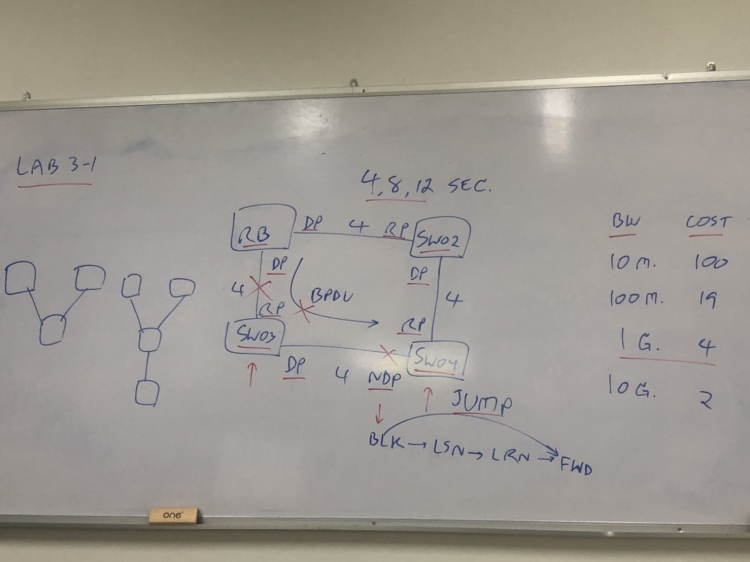 LAB 3-1
4,8,12 SEC.
BW COST
10 M. 100
100 M. 19
1 G. 4
10 G. 2
RB DP 4 RP SW02
DP DP
4 BPDU 4
RP RP
SW03 SW04
DP 4 NDP
JUMP
BLK → LSN → LRN → FWD
one